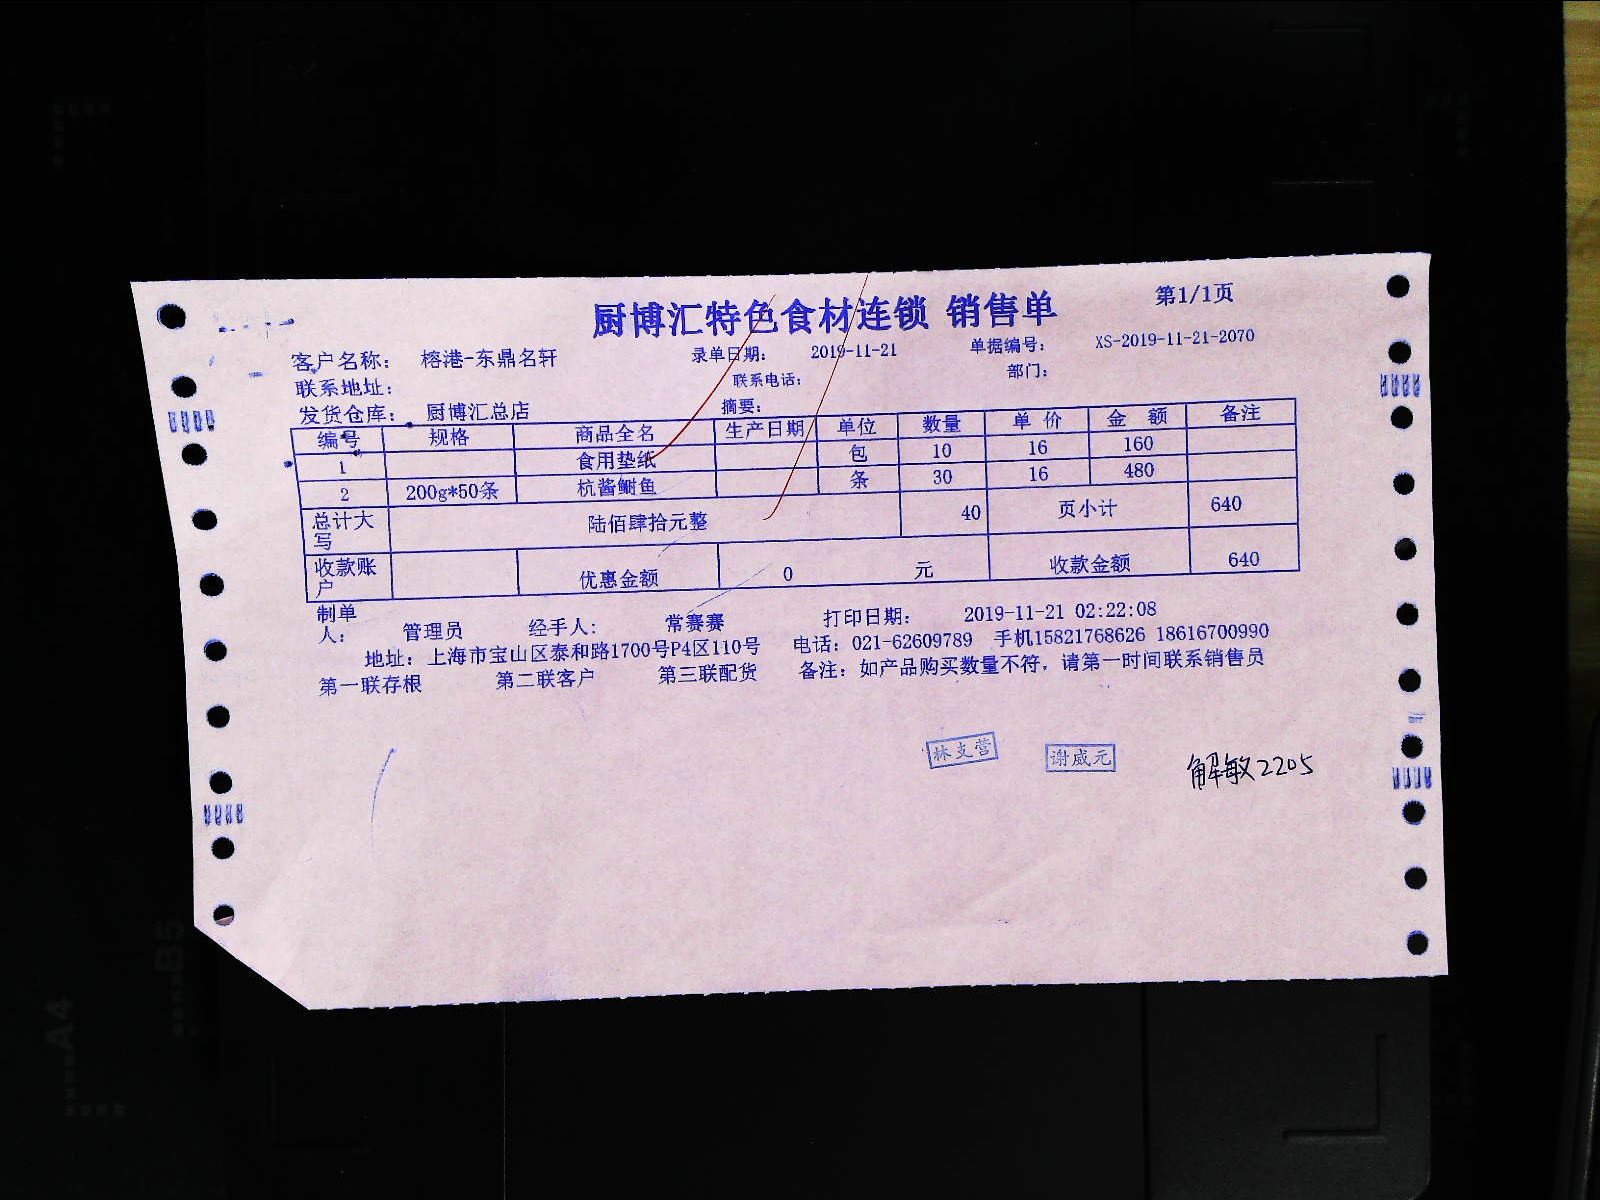 厨博汇特色食材连锁 销售单 第1/1页
客户名称： 榕港-东鼎名轩 录单日期： 2019-11-21 单据编号： XS-2019-11-21-2070
联系地址： 联系电话： 部门：
发货仓库： 厨博汇总店 摘要：
编号 规格 商品全名 生产日期 单位 数量 单 价 金 额 备注
1 食用垫纸 包 10 16 160
2 200g*50条 杭酱鲥鱼 条 30 16 480
总计大写 陆佰肆拾元整 40 页小计 640
收款账户 优惠金额 0 元 收款金额 640
制单人： 管理员 经手人： 常赛赛 打印日期： 2019-11-21 02:22:08
地址：上海市宝山区泰和路1700号P4区110号 电话：021-62609789 手机15821768626 18616700990
第一联存根 第二联客户 第三联配货 备注：如产品购买数量不符，请第一时间联系销售员
林支营 谢威元 解敏2205
A4
B5